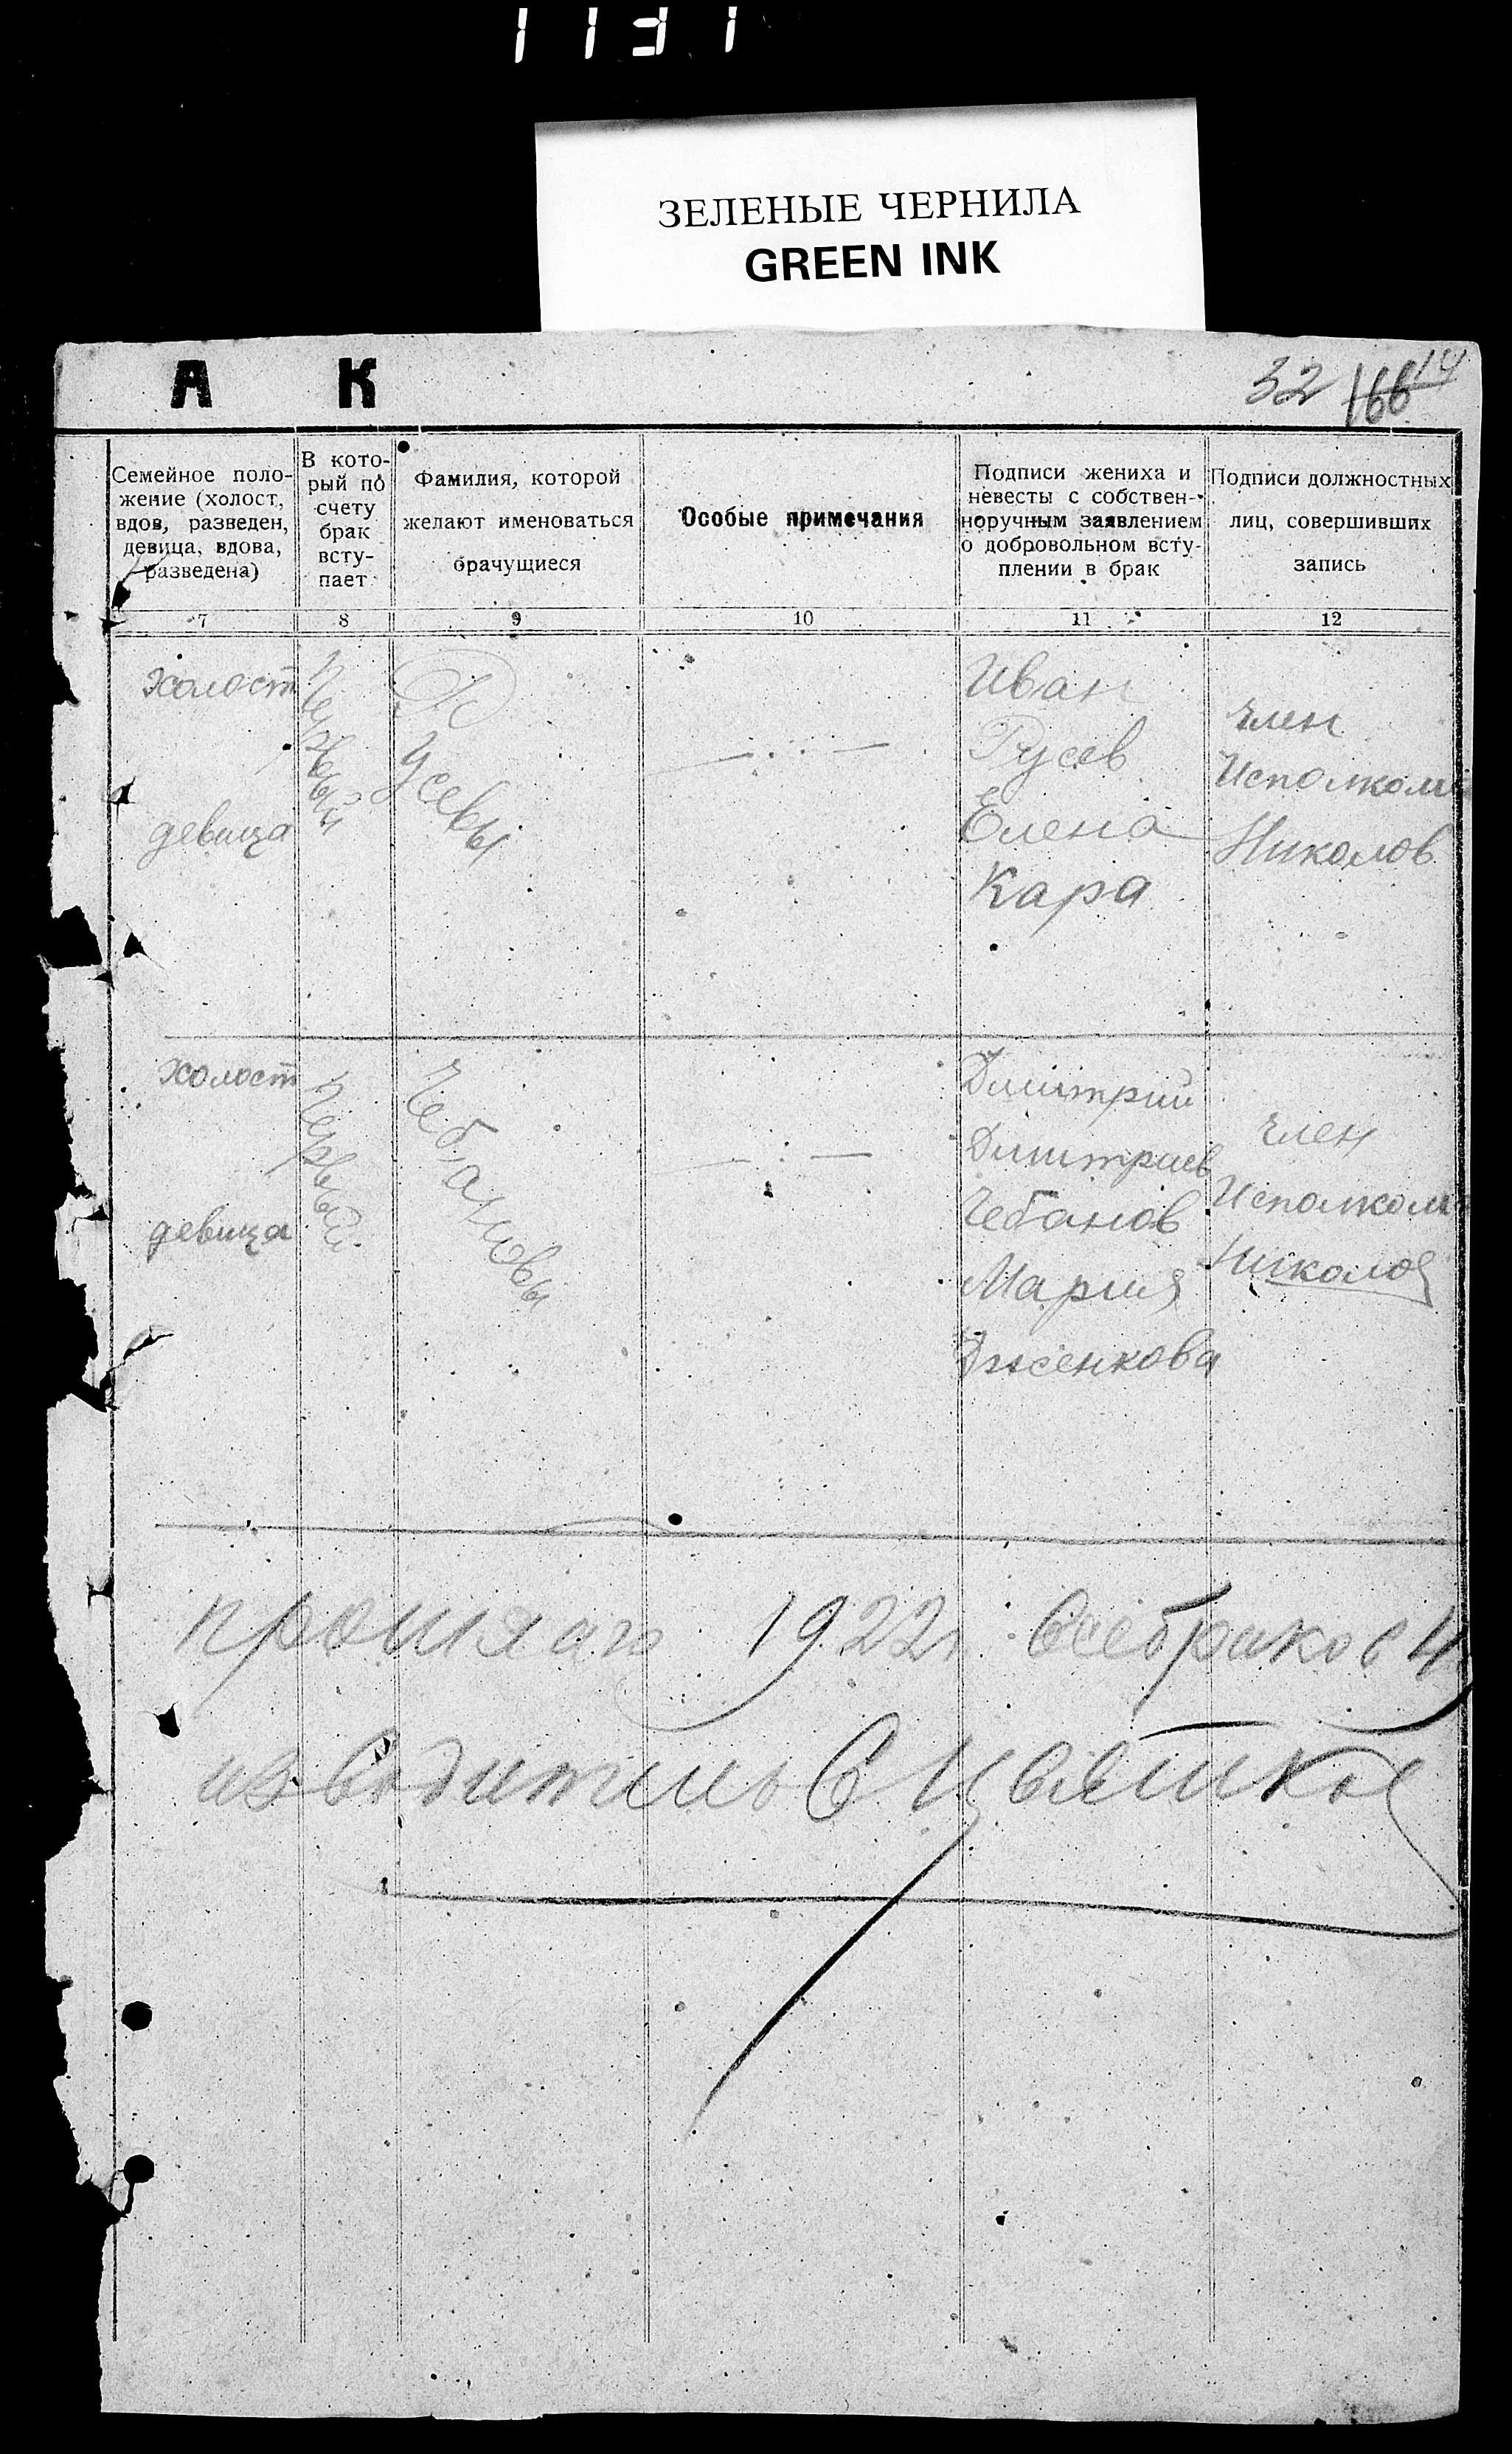 1131
ЗЕЛЕНЫЕ ЧЕРНИЛА
GREEN INK
А К
32 166 14
Семейное поло-
жение (холост,
вдов, разведен,
девица, вдова,
разведена)
В кото-
рый по
счету
брак
всту-
пает
Фамилия, которой
желают именоваться
брачущиеся
Особые примечания
Подписи жениха и
невесты с собствен-
норучным заявлением
о добровольном всту-
плении в брак
Подписи должностных
лиц, совершивших
запись
7 8 9 10 11 12
холост
девица
Первый
Русевы
Иван
Русев
Елена
Кара
Член
Исполкома
Николов
холост
девица
Первый
Чебановы
Дмитрий
Дмитриев
Чебанов
Мария
Дженкова
Член
Исполкома
Николов
1922г. всебраков 4
изводитель